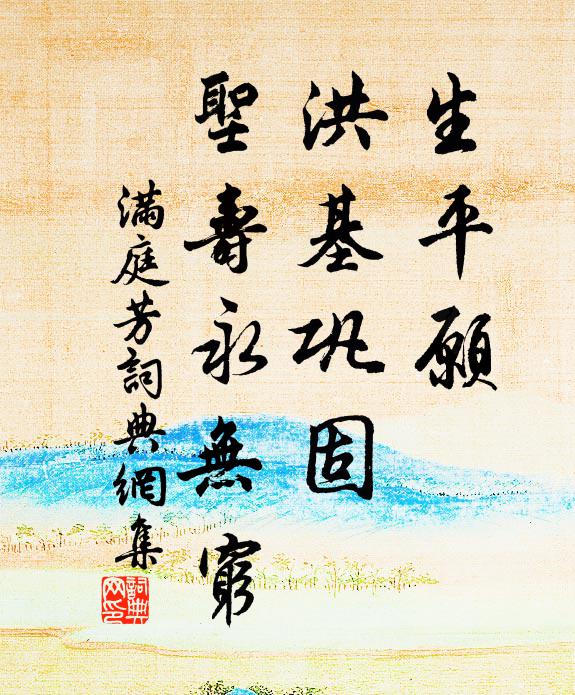 生平願
洪基巩固
聖壽永無窮
滿庭芳詞典網集
詞典
网印